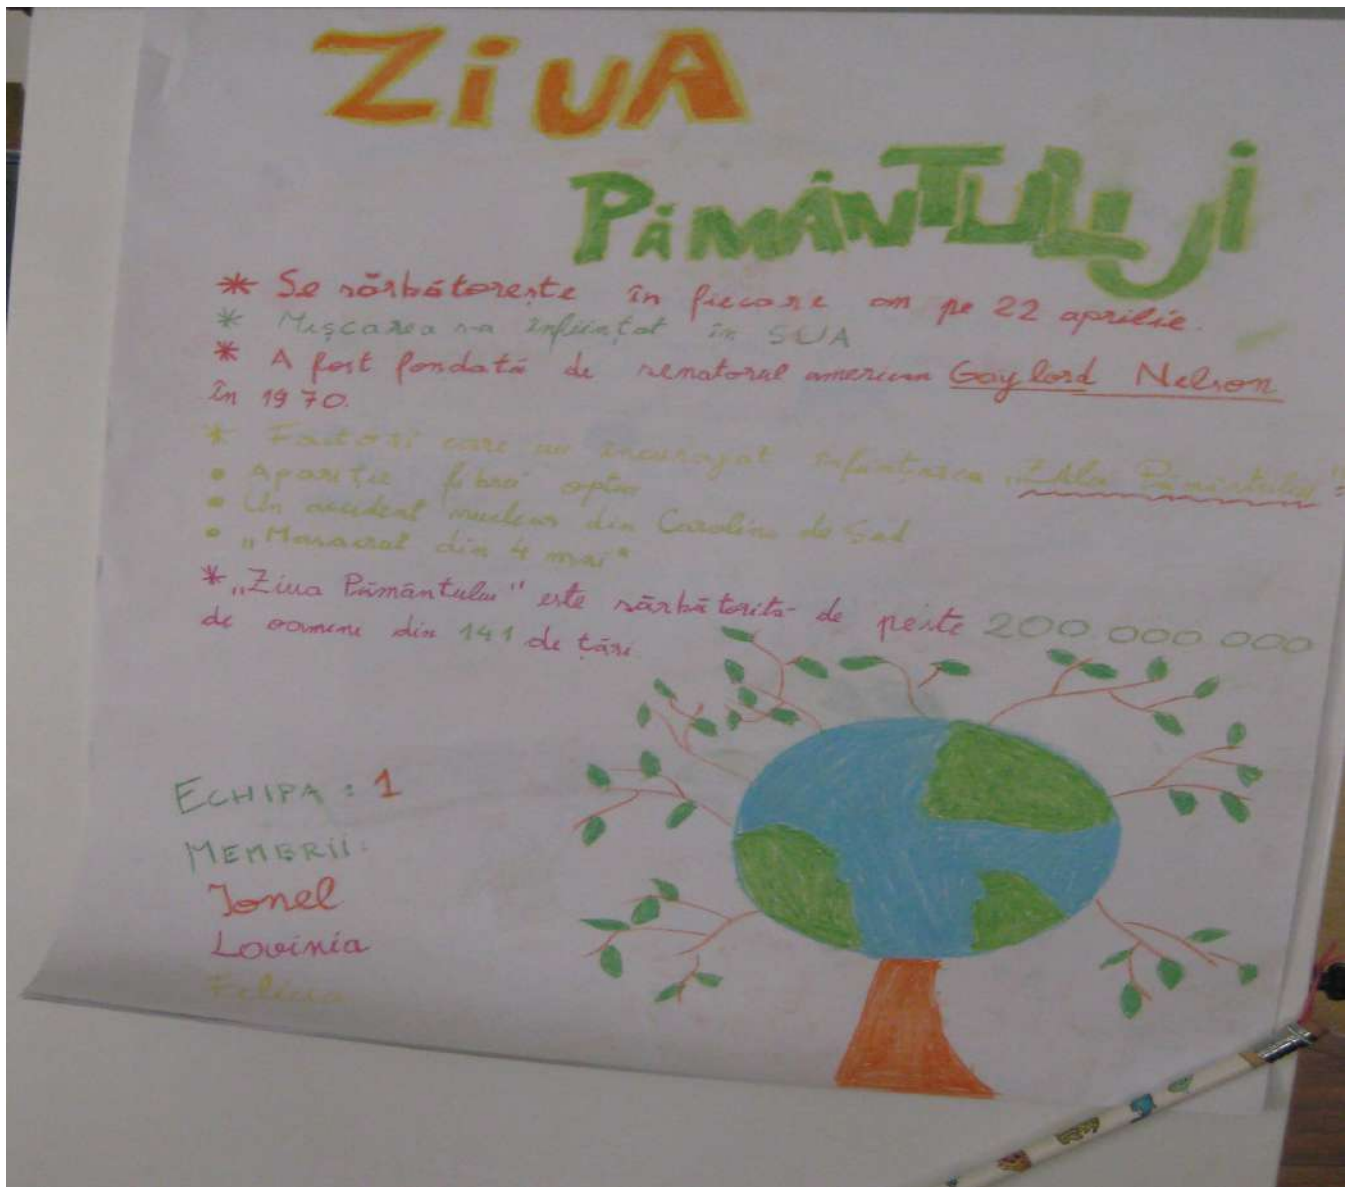 ZiUA
PĂMÂNTULUi
* Se sărbătorește în fiecare an pe 22 aprilie.
* Mișcarea s-a înființat în SUA
* A fost fondată de senatorul american Gaylord Nelson
în 1970.
* Factori care au încurajat înființarea „Zilei Pământului":
• Apariție fibră optic
• Un accident nuclear din Carolina de Sud
• „Masacrul din 4 mai"
* „Ziua Pământului" este sărbătorită de peste 200.000.000
de oameni din 141 de țări
ECHIPA : 1
MEMBRII:
Ionel
Lavinia
Felicia